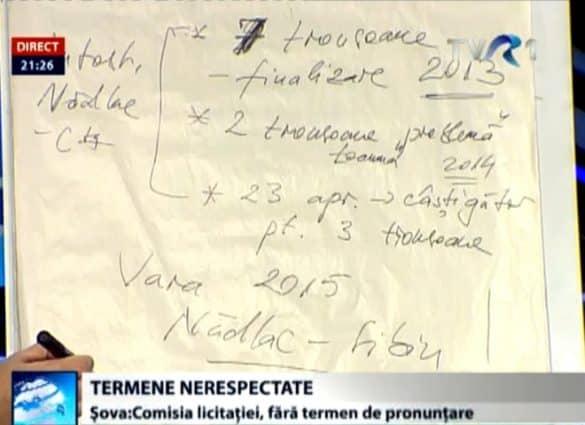 DIRECT
21:26
TVR1
* 7 tronsoane
- finalizare 2013
Nădlac
- Cța
* 2 tronsoane "problemă"
toamna 2014
* 23 apr. → câștigător
pt. 3 tronsoane
Vara 2015
Nădlac - Sibiu
TERMENE NERESPECTATE
Șova:Comisia licitației, fără termen de pronunțare